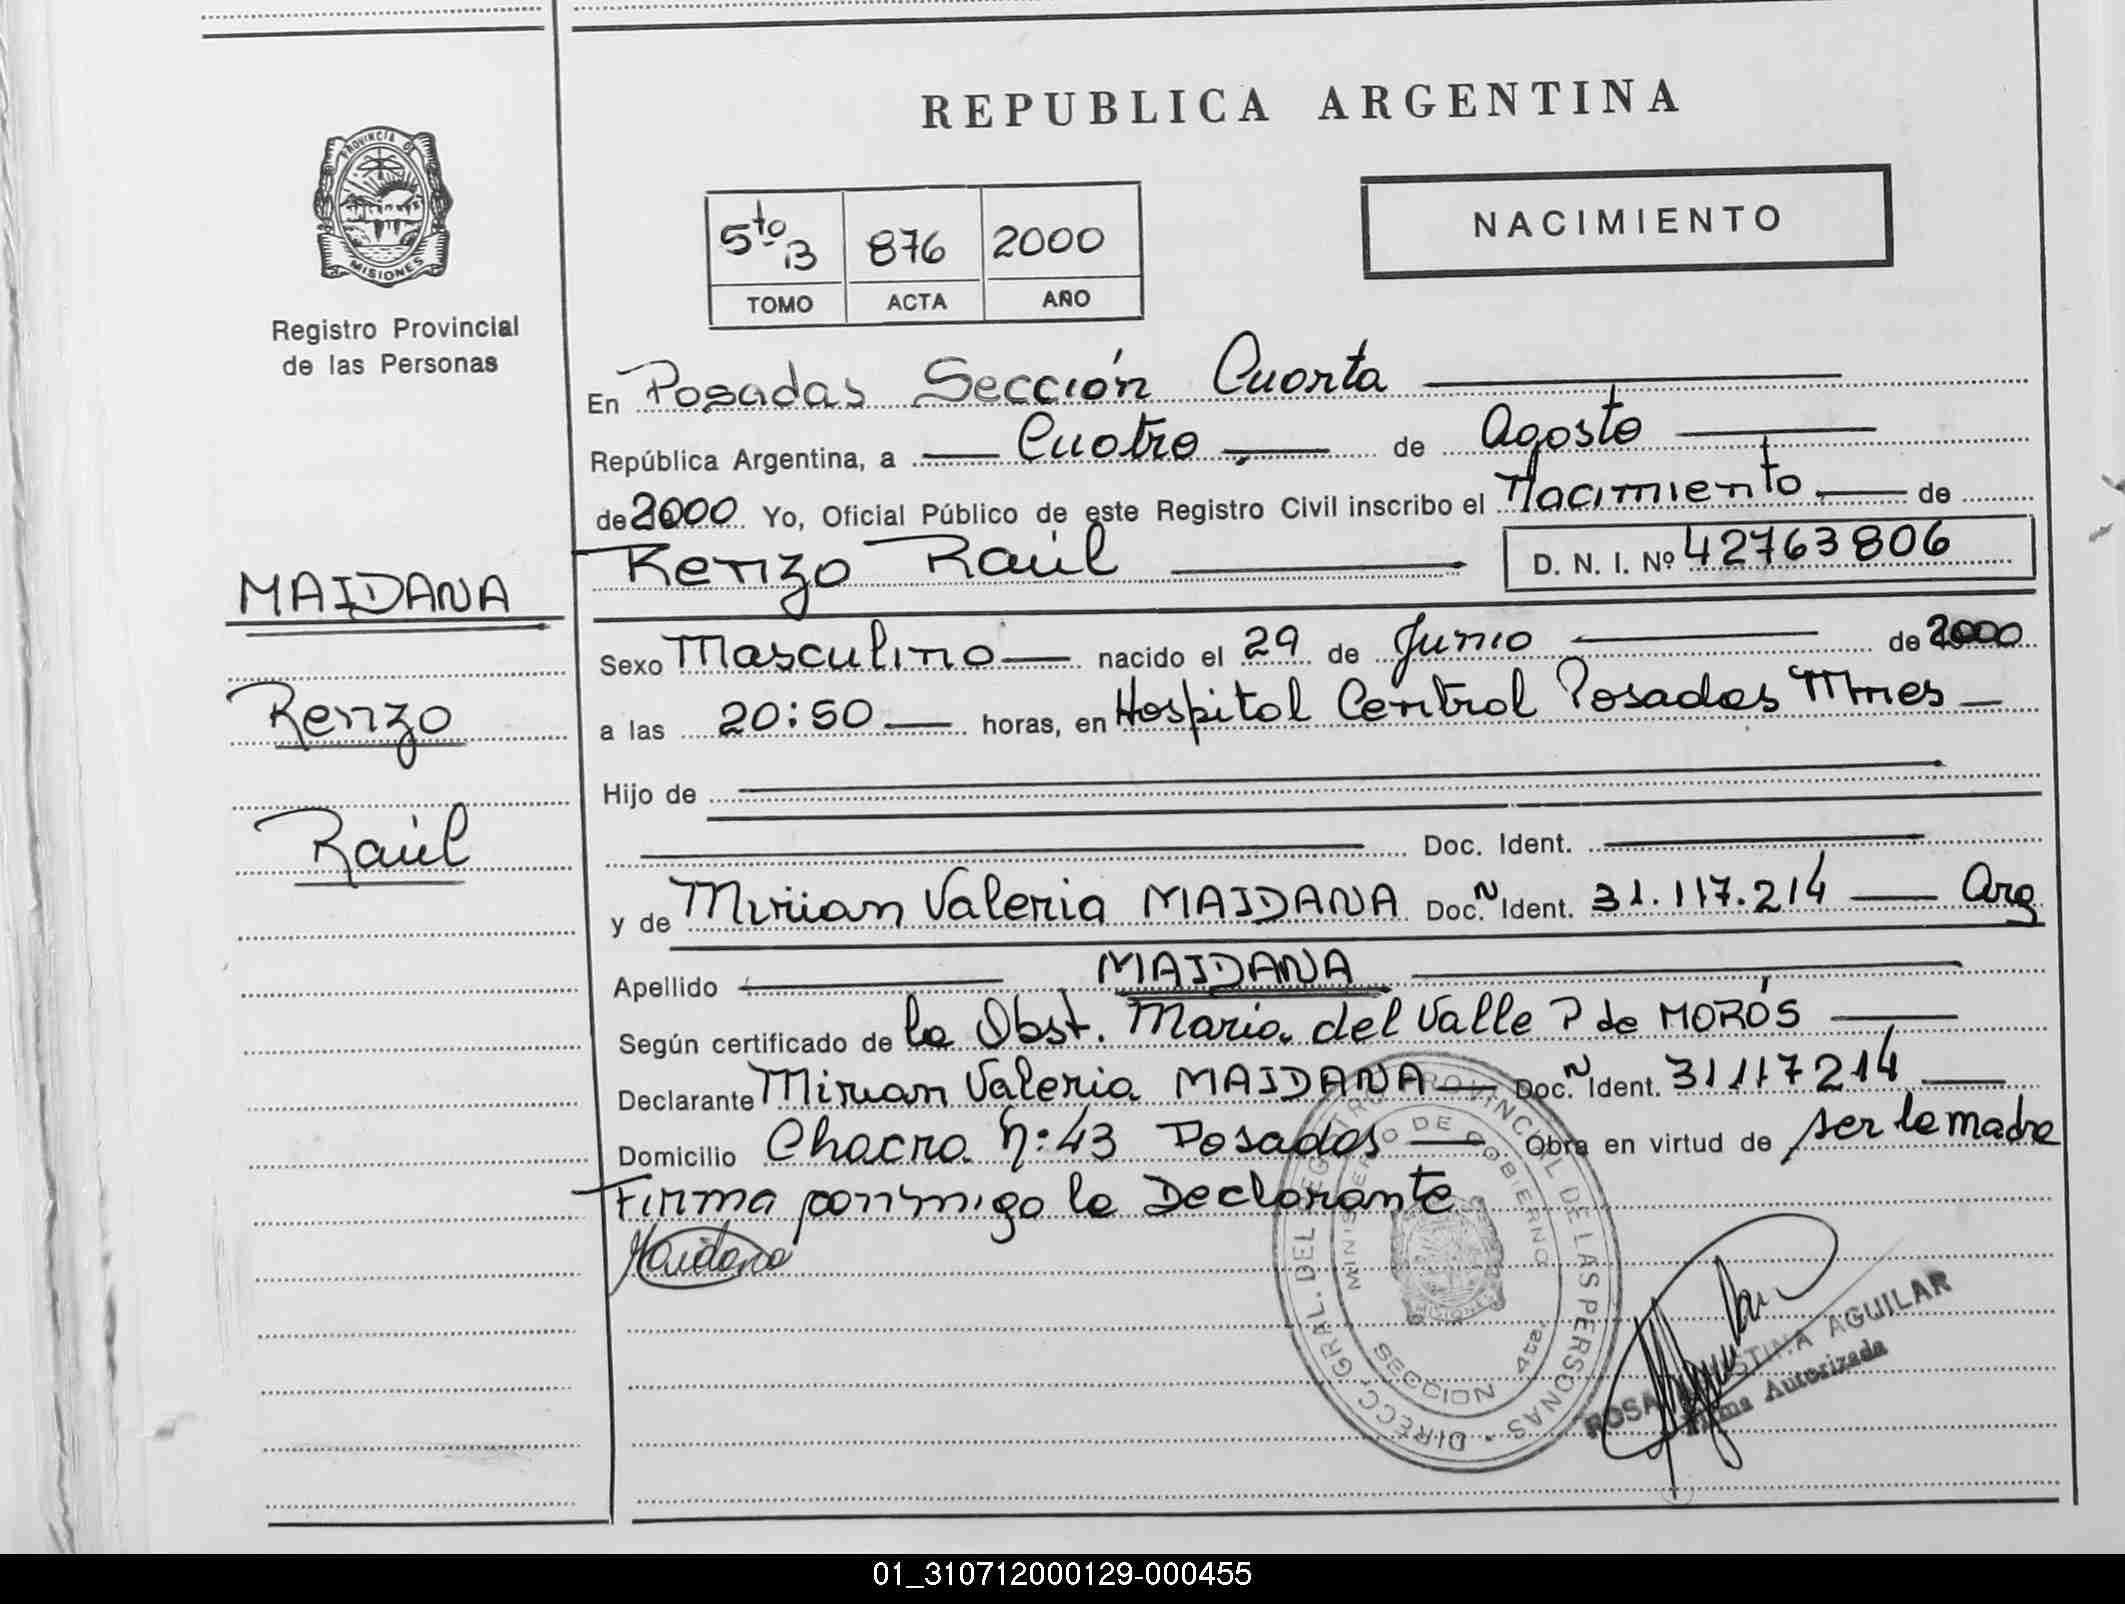 REPUBLICA ARGENTINA
PROVINCIA DE
MISIONES
Registro Provincial
de las Personas
5to 13 876 2000
TOMO ACTA AÑO
NACIMIENTO
En Posadas Sección Cuarta
República Argentina, a Cuatro de Agosto
de 2000 Yo, Oficial Público de este Registro Civil inscribo el Nacimiento de
Renzo Raúl D. N. I. Nº 42763806
MAIDANA
Renzo
Raúl
Sexo Masculino nacido el 29 de Junio de 2000
a las 20:50 horas, en Hospital Central Posadas Mnes
Hijo de
Doc. Ident.
y de Mirian Valeria MAIDANA Doc. N Ident. 31.117.214 Arg
Apellido MAIDANA
Según certificado de la Obst. Maria del Valle P de MORÓS
Declarante Mirian Valeria MAIDANA Doc. N Ident. 31117214
Domicilio Chacra N: 43 Posadas Obra en virtud de ser la madre
Firma conmigo la Declarante
Maidana
DIRECC. GRAL. DEL REGISTRO PROVINCIAL DE LAS PERSONAS
MINISTERIO DE GOBIERNO
MISIONES
SECCION 4ta.
ROSA AGUILAR
Firma Autorizada
01_310712000129-000455